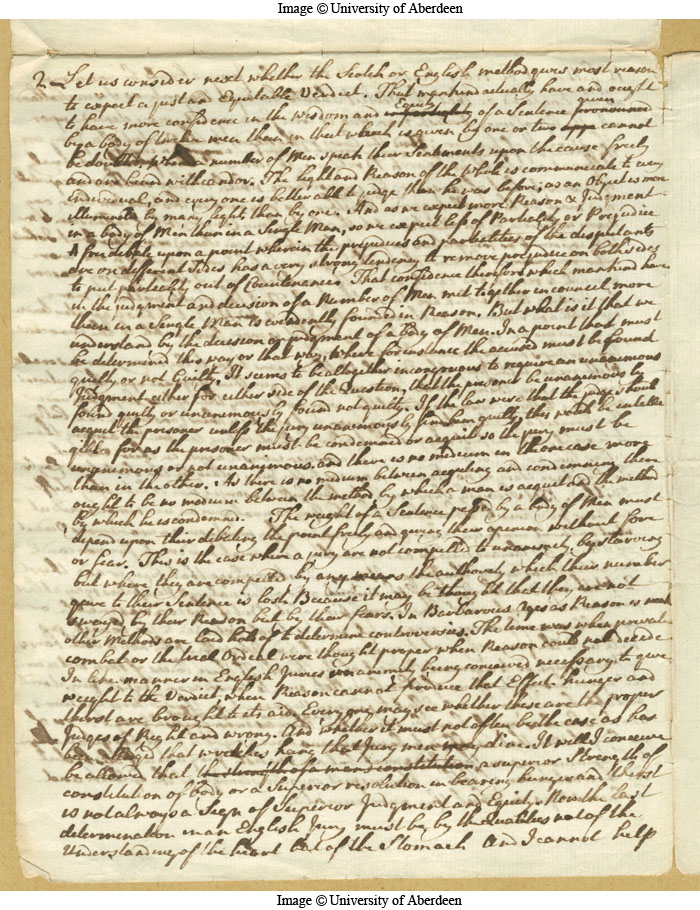 Image © University of Aberdeen
2 Let us consider next whether the Scotch or English method gives most reason
to expect a just and Equitable Verdict. That mankind actually have and ought
to have more confidence in the wisdom and Equity of a Sentence given pronounced
by a body of twelve men than in that which is given by one or two cannot
be doubted number of Men speak their Sentiments upon the cause freely
and are heard with candor. The light and Reason of the whole is communicate to every
Individual, and every one is better able to judge than he was before; as an Object is more
illuminate by many lights than by one. And as we expect more Reason & Judgment
in a body of Men than in a Single Man, so we expect less of Partiality or Prejudice
A free debate upon a point wherein the prejudices and partialities of the disputants
are on different Sides has a very strong tendency to remove prejudice on both sides
to put partiality out of Countenance. That confidence therefore which mankind have
in the judgment and decision of a Number of Men met together in council more
than in a Single Man is evidently founded in Reason. But what is it that we
understand by the decision or judgment of a body of Men. In a point that must
be determind this way or that way, where for instance the accused must be found
guilty or not Guilty, It seems to be altogether incongruous to require an unanimous
Judgment either for either side of the Question, that the prisoner be unanimously
found guilty or unanimously found not guilty. If the law were that the judge should
acquit the prisoner unless the jury unanimously find him guilty this would be
for as the prisoner must be condemned or acquit so the jury must be
unanimous or not unanimous. and there is no medium in the one case more
than in the other. As there is no medium between acquiting and condemning there
ought to be no medium between the method by which a man is acquit and the method
by which he is condemnd. The weight of a Sentence passed by a body of Men must
depend upon their debating the point freely and giving their opinion without force
or fear. This is the case where a jury are not compelled to unanimity by starving
but where they are compelled by any means the authority which their number
gave to their Sentence is lost. Because it may be thought that they are not
swayed by their Reason but by their fears. In Barbarous Ages as Reason is weak
other Methods are to determine controversies. The time was when
combat or the trial Ordeal were thought proper when Reason could not decide
In like manner in English Juries unanimity being conceived necessary to give
weight to the Verdict, when Reason cannot produce that Effect. hunger and
thirst are brought to its aid. Every one may see whether these are the proper
Judges of Right and wrong. And whether it must not often be the case as has
been that wretches hang that Jury men may dine. It will I conceive
be allowed that the strength of a mans constitution a superior Strength of
constitution of body or a Superior resolution in bearing hunger and thirst
is not always a Sign of Superior Judgment and Equity. Now the last
determination in an English Jury must be by the Qualities not of the
understanding, of the heart but of the Stomach And I cannot help
Image © University of Aberdeen